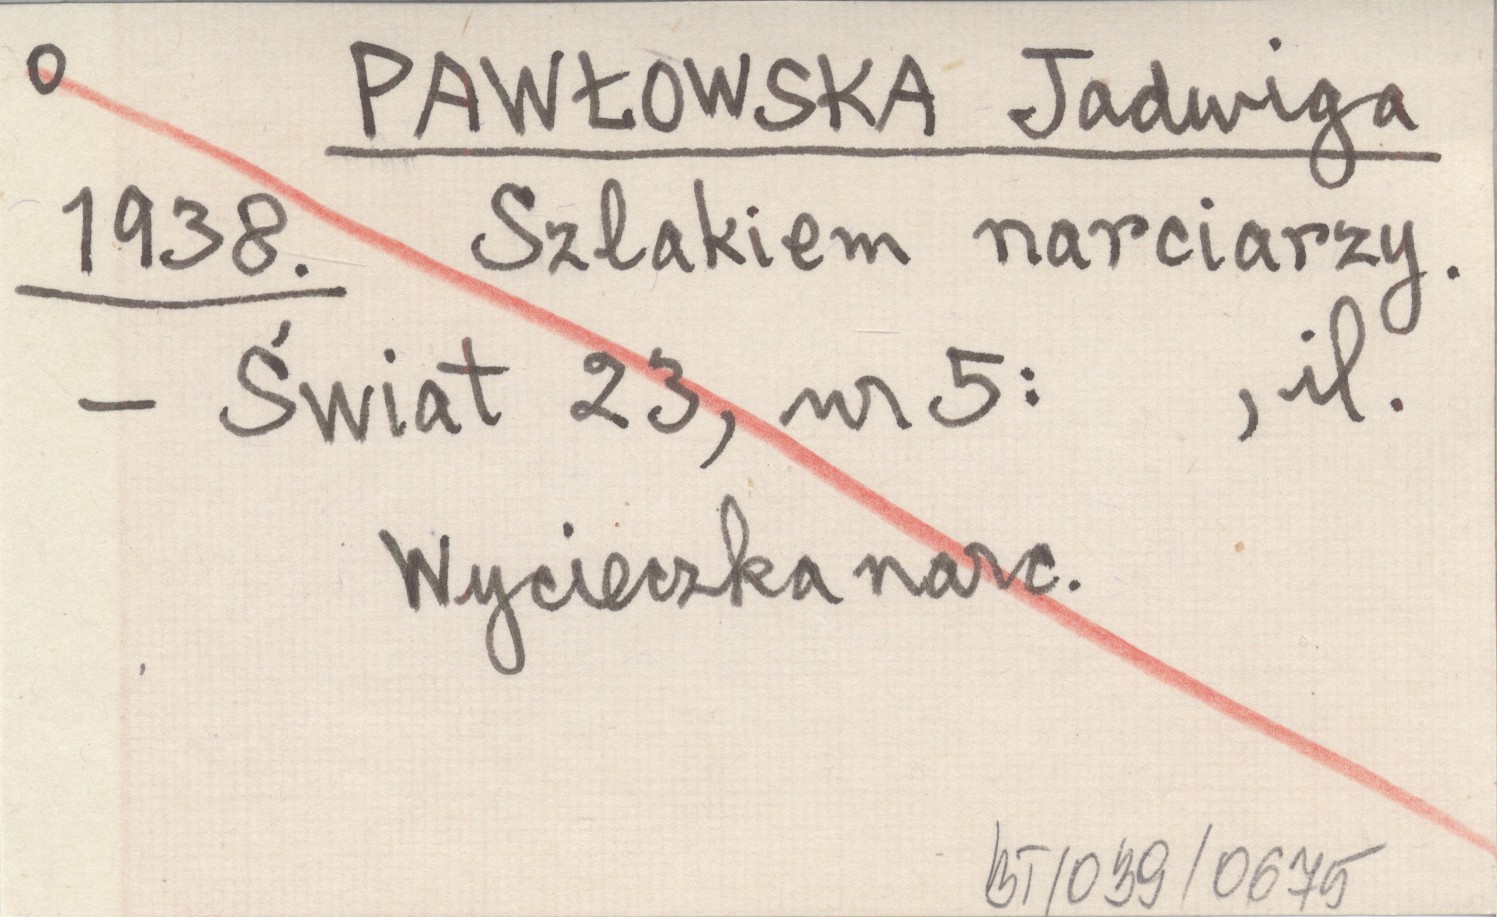 o PAWŁOWSKA Jadwiga
1938. Szlakiem narciarzy.
– Świat 23, nr 5: , il.
Wycieczka narc.
BT/039/0675